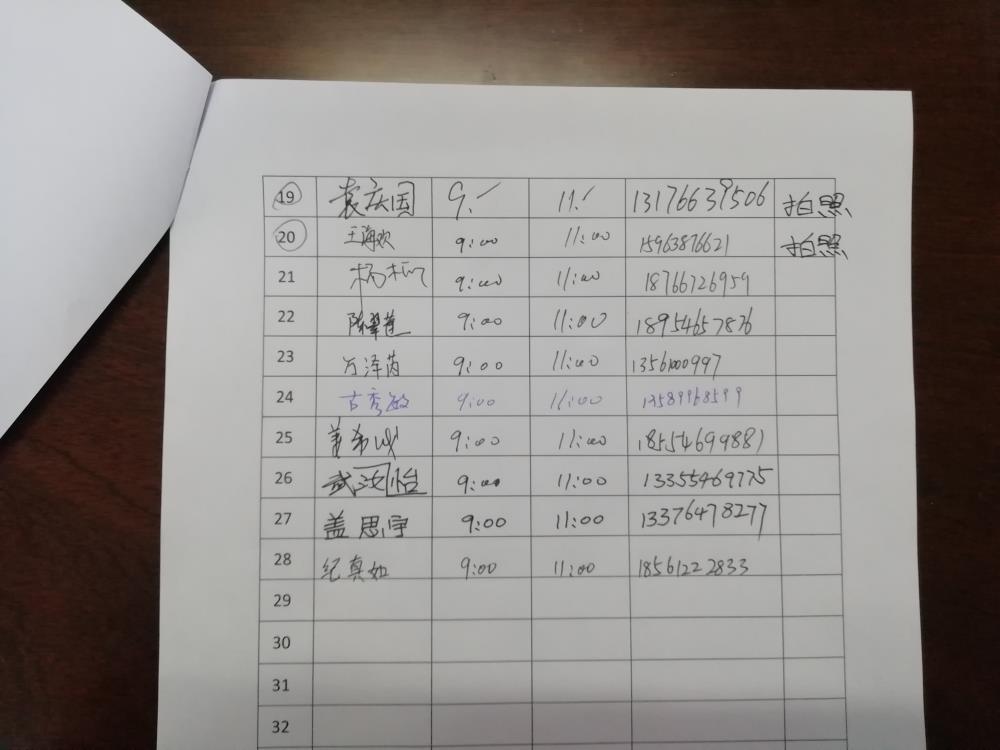 19 袁庆国 9:/ 11:/ 13176639506 拍照
20 王海欢 9:00 11:00 15963876621 拍照
21 杨 9:00 11:00 18766726959
22 陈翠莲 9:00 11:00 18954657876
23 万泽茵 9:00 11:00 13561000997
24 古秀敏 9:00 11:00 13589968599
25 9:00 11:00 18554699881
26 武汝怡 9:00 11:00 13355469775
27 盖思宇 9:00 11:00 13376478277
28 纪真如 9:00 11:00 18561222833
29
30
31
32